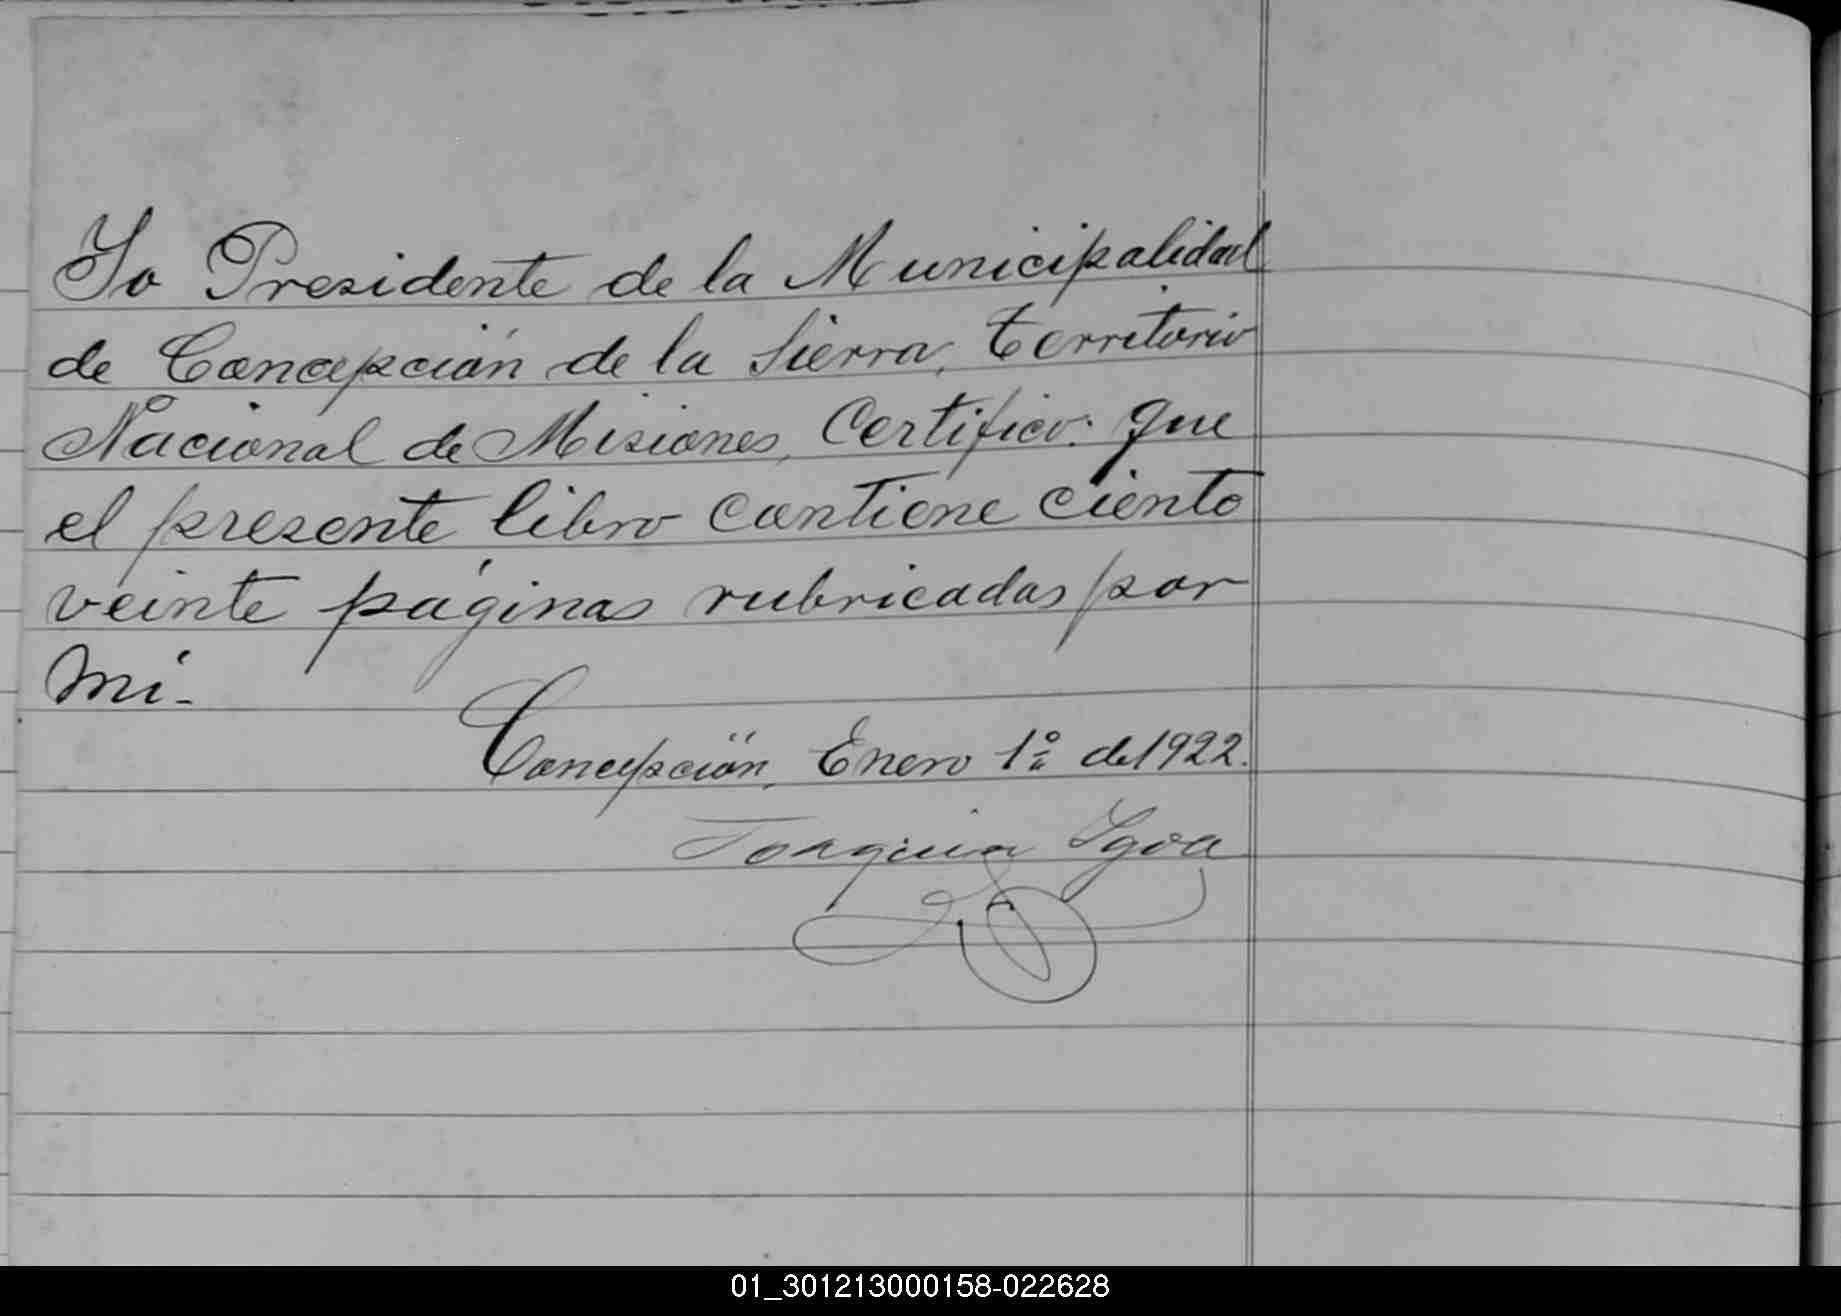 Yo Presidente de la Municipalidad
de Concepción de la Sierra, territorio
Nacional de Misiones, Certifico: que
el presente libro contiene ciento
veinte páginas rubricadas por
mi.-
Concepción, Enero 1º de 1922.
Joaquin Ygoa
01_301213000158-022628